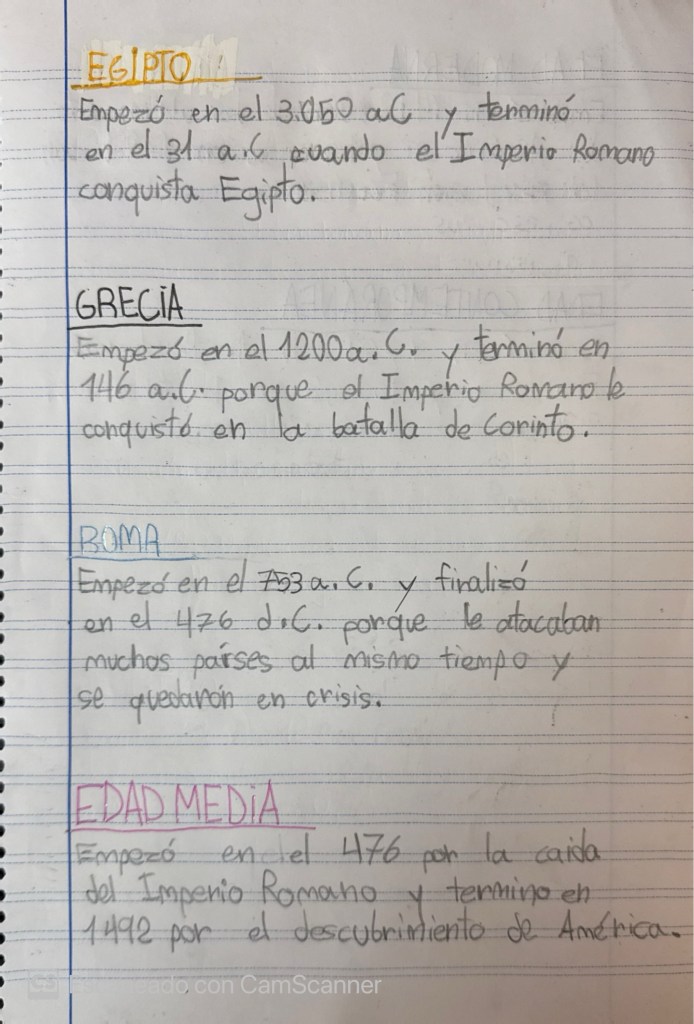 EGIPTO
Empezó en el 3.050 aC y terminó
en el 31 a.C cuando el Imperio Romano
conquista Egipto.
GRECIA
Empezó en el 1200 a.C. y terminó en
146 a.C. porque el Imperio Romano le
conquistó en la batalla de Corinto.
ROMA
Empezó en el 753 a.C. y finalizó
en el 476 d.C. porque le atacaban
muchos países al mismo tiempo y
se quedarón en crisis.
EDAD MEDIA
Empezó en el 476 por la caida
del Imperio Romano y termino en
1492 por el descubrimiento de América.
con CamScanner